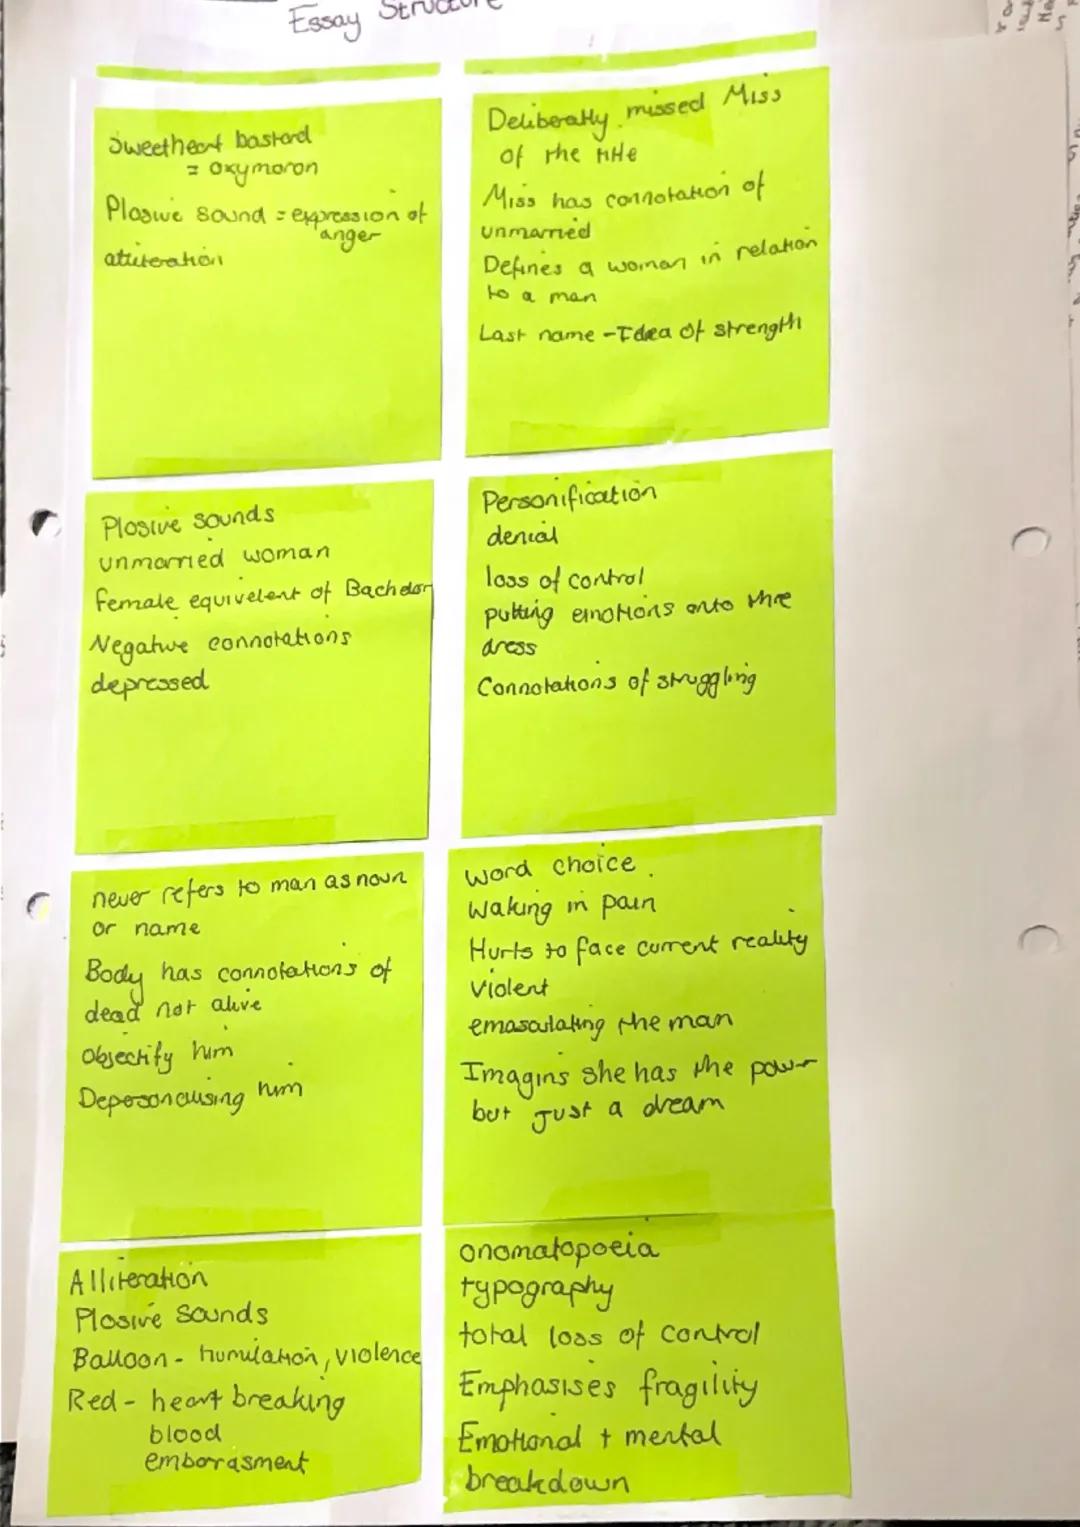 Essay Structure
Sweetheart bastard
= oxymoron
Plosive sound = expression of
anger
Deliberatly missed Miss
of the title
Miss has connotation of
unmarried
Defines a woman in relation
to a man
Last name - Idea of strength
Plosive sounds
unmarried woman
female equivelent of Bachelor
Negative connotations
depressed
Personification
denial
loss of control
putting emotions onto the
dress
Connotations of struggling
never refers to man as noun
or name
Body has connotations of
dead not alive
Objectify him
him
word choice.
Waking in pain
Hurts to face current reality
Violent
emasculating the man
Imagins she has the power
but Just a dream
Alliteration
Plosive Sounds
Balloon - humilation, violence
Red - heart breaking
blood
embarrasment
onomatopoeia
typography
total loss of control
Emphasises fragility
Emotional + mental
breakdown